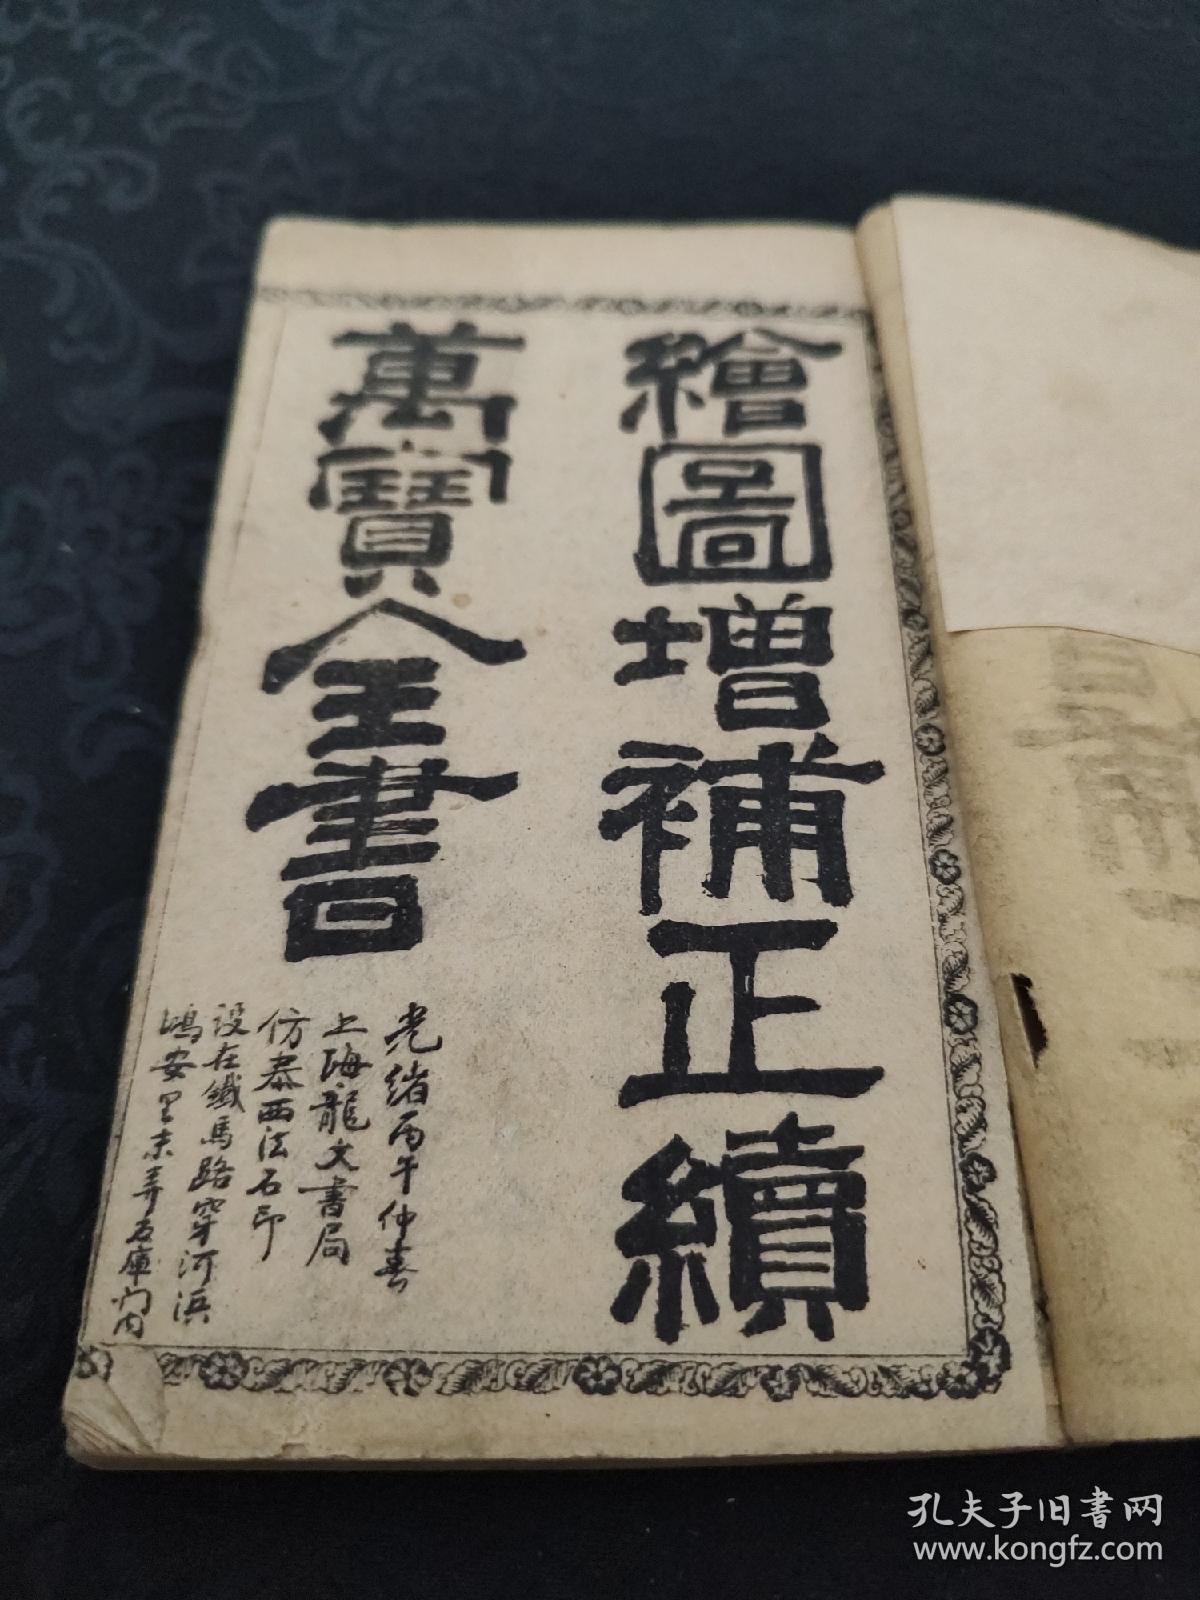 繪圖增補正續
萬寶全書
光緒丙午仲春
上海龍文書局
仿泰西法石印
設在鐵馬路穿河浜
鴻安里末弄石庫門内
孔夫子旧書网
www.kongfz.com